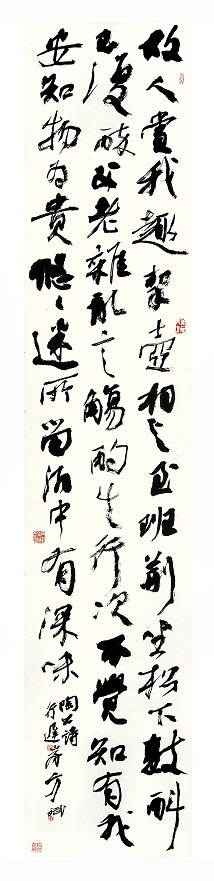 故人賞我趣挈壺相与至班荊坐松下數斟
已復醉父老雜亂言觴酌失行次不覺知有我
安知物为貴悠々迷所留酒中有深味
陶公詩